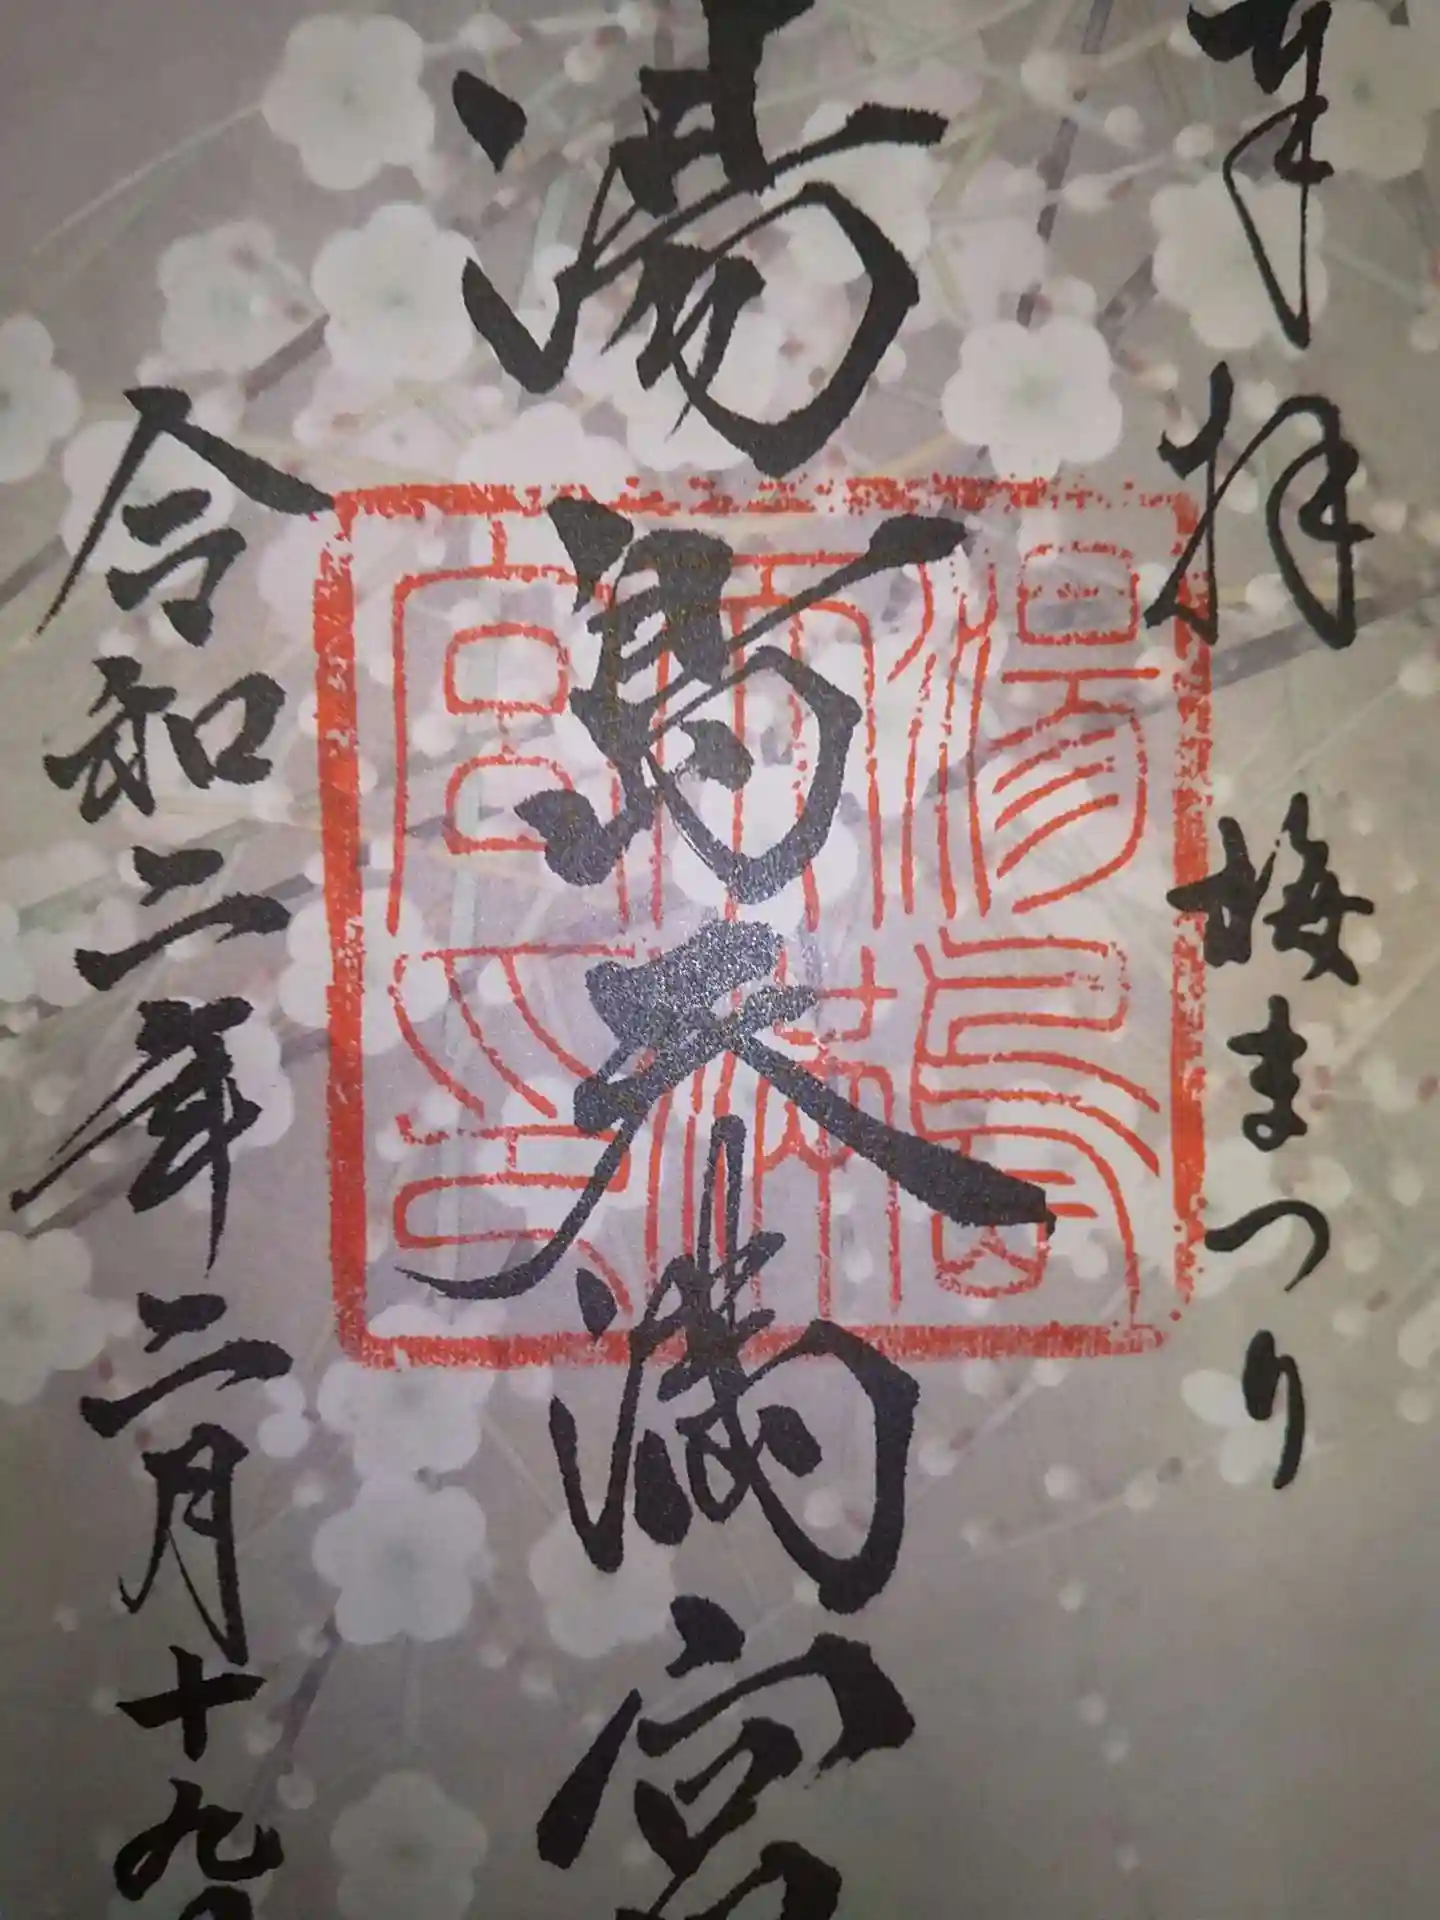 奉拝 梅まつり
湯島天満宮
令和二年二月十九日
湯島天満宮印